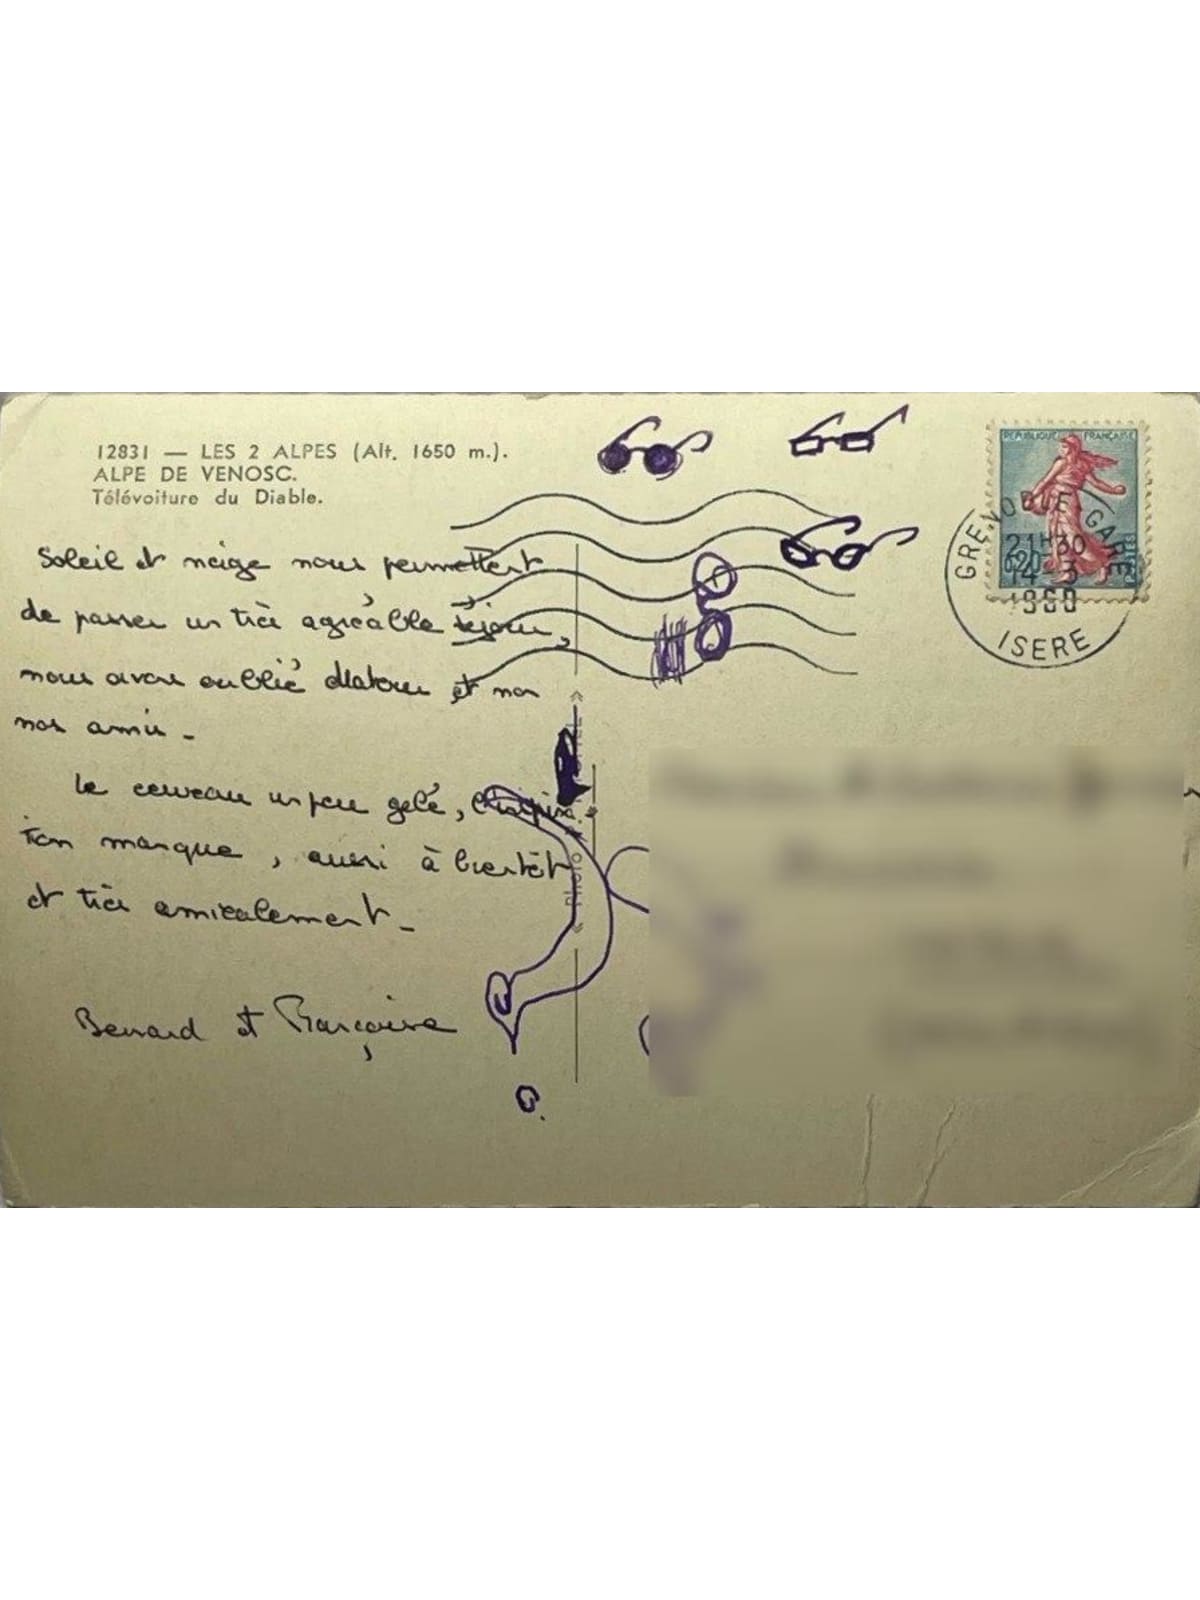 12831 — LES 2 ALPES (Alt. 1650 m.).
ALPE DE VENOSC.
Télévoiture du Diable.
Soleil et neige nous permettent
de passer un très agréable séjour,
nous avons oublié et non
nos amis -
Le cerveau un peu gelé, l'inspira-
tion manque, aussi à bientôt
et très amicalement -
Bernard et Françoise
« Photo »
REPUBLIQUE FRANÇAISE
0,20
POSTES
GARE
21H30
14-3
1960
ISERE